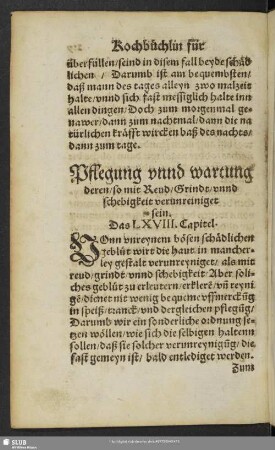 Kochbüchlin für
überfüllen / seind in disem fall beyde schäd
lichen / Darumb ist am bequembsten /
daß mann des tages alleyn zwo malzeit
halte / vnnd sich fast messiglich halte inn
allen dingen / Doch zum morgenmal ge-
nawer / dann zum nachtmal / dann die na
türlichen kräfft wircken baß des nachts /
dann zum tage.
Pflegung vnnd wartung
deren / so mit Reud / Grindt / vnnd
schebigkeit verunreiniget
sein.
Das LXVIII. Capitel.
VOnn vnreynem bösen schädlichen
geblüt wirt die haut in mancher-
ley gestalt verunreyniget / als mit
reud / grindt / vnnd schebigkeit / Aber soli-
ches geblüt zu erleutern / erklerē / vñ reyni
gē / dienet nit wenig bequeme vffmerckūg
in speiß / tranck / vnd dergleichen pflegūg /
Darumb wir ein sonderliche ordnung se-
tzen wöllen / wie sich die selbigen haltenn
sollen / daß sie solcher verunreynigūg / die
fast gemeyn ist / bald entlediget werden.
Zum
SLUB